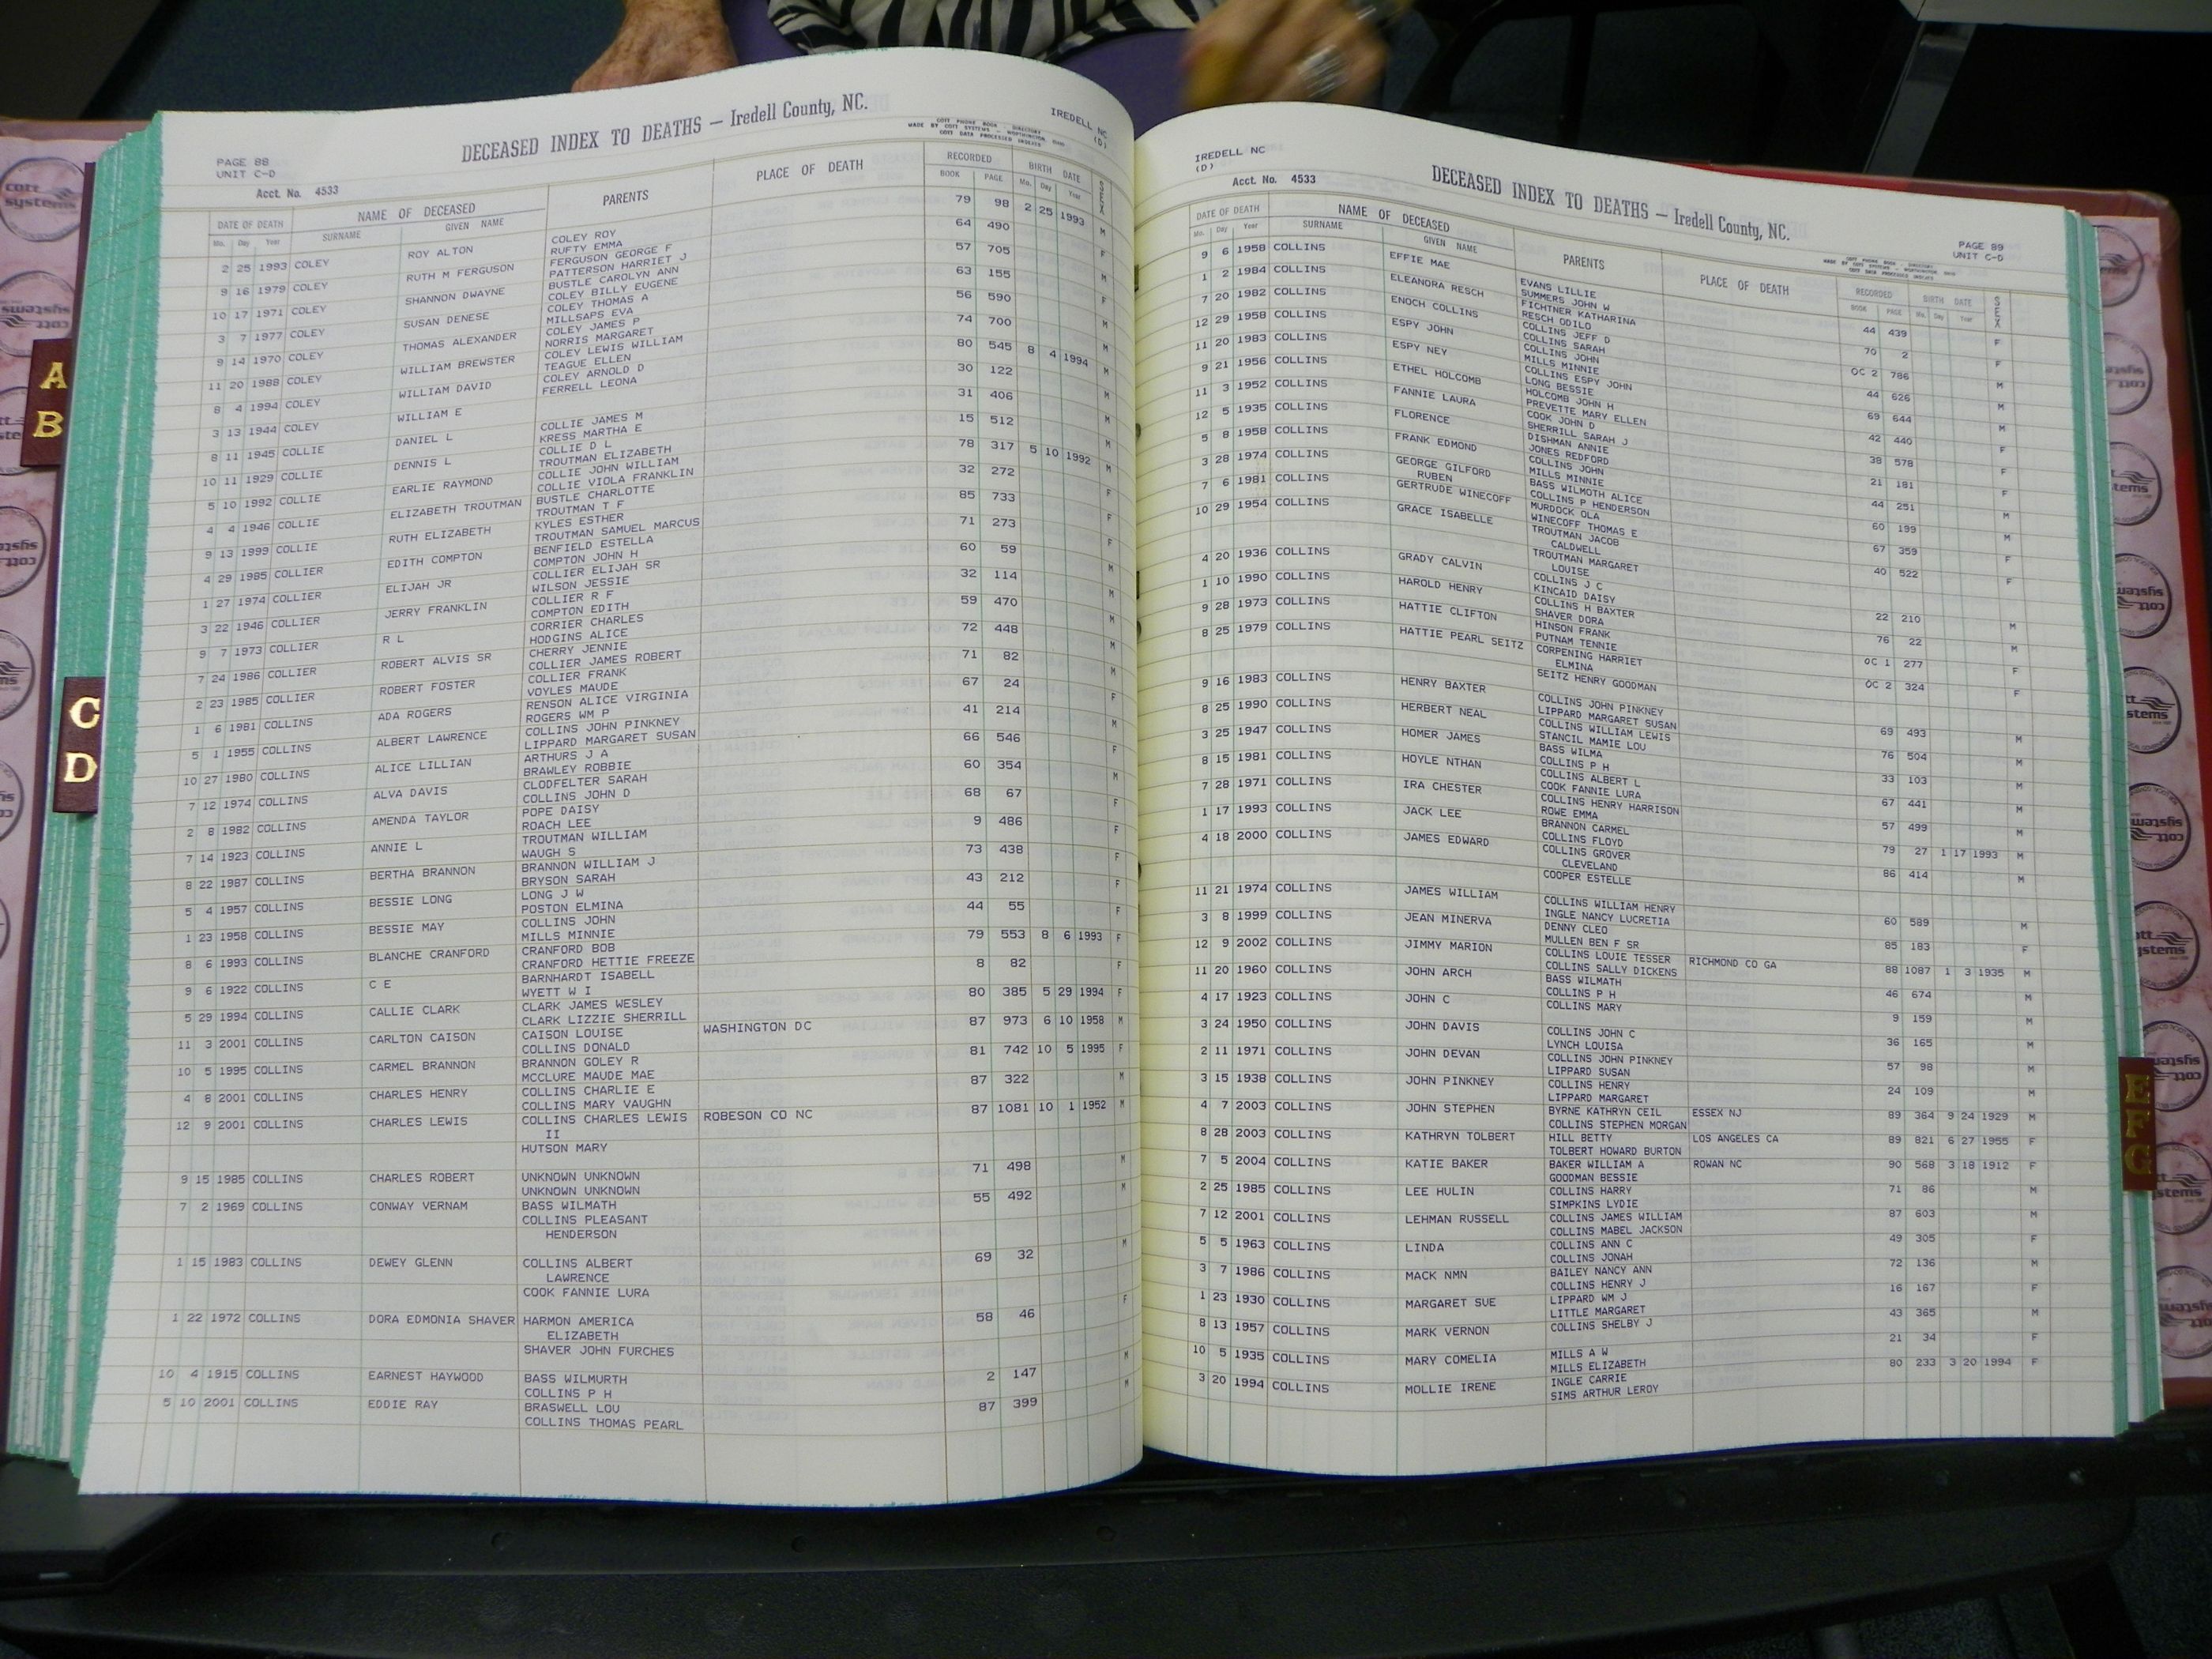 DECEASED INDEX TO DEATHS — Iredell County, NC.
IREDELL NC
(D)
PAGE 88
UNIT C-D
Acct. No. 4533
COTT PHONE BOOK - DIRECTORY
MADE BY COTT SYSTEMS - WORTHINGTON OHIO
COTT DATA PROCESSED INDEXES
DATE OF DEATH NAME OF DECEASED PARENTS PLACE OF DEATH RECORDED BIRTH DATE SEX
Mo. Day Year SURNAME GIVEN NAME BOOK PAGE Mo. Day Year
2 25 1993 COLEY ROY ALTON COLEY ROY 79 98 2 25 1993 M
RUFTY EMMA
9 16 1979 COLEY RUTH M FERGUSON FERGUSON GEORGE F 64 490 F
PATTERSON HARRIET J
10 17 1971 COLEY SHANNON DWAYNE BUSTLE CAROLYN ANN 57 705 M
COLEY BILLY EUGENE
3 7 1977 COLEY SUSAN DENESE COLEY THOMAS A 63 155 F
MILLSAPS EVA
9 14 1970 COLEY THOMAS ALEXANDER COLEY JAMES P 56 590 M
NORRIS MARGARET
11 20 1988 COLEY WILLIAM BREWSTER COLEY LEWIS WILLIAM 74 700 M
TEAGUE ELLEN
8 4 1994 COLEY WILLIAM DAVID COLEY ARNOLD D 80 545 8 4 1994 M
FERRELL LEONA
3 13 1944 COLEY WILLIAM E 30 122 M
8 11 1945 COLLIE DANIEL L COLLIE JAMES M 31 406 M
KRESS MARTHA E
10 11 1929 COLLIE DENNIS L COLLIE D L 15 512 M
TROUTMAN ELIZABETH
5 10 1992 COLLIE EARLIE RAYMOND COLLIE JOHN WILLIAM 78 317 5 10 1992 M
COLLIE VIOLA FRANKLIN
4 4 1946 COLLIE ELIZABETH TROUTMAN BUSTLE CHARLOTTE 32 272 F
TROUTMAN T F
9 13 1999 COLLIE RUTH ELIZABETH KYLES ESTHER 85 733 F
TROUTMAN SAMUEL MARCUS
4 29 1985 COLLIER EDITH COMPTON BENFIELD ESTELLA 71 273 F
COMPTON JOHN H
1 27 1974 COLLIER ELIJAH JR COLLIER ELIJAH SR 60 59 M
WILSON JESSIE
3 22 1946 COLLIER JERRY FRANKLIN COLLIER R F 32 114 M
COMPTON EDITH
9 7 1973 COLLIER R L CORRIER CHARLES 59 470 M
HODGINS ALICE
7 24 1986 COLLIER ROBERT ALVIS SR CHERRY JENNIE 72 448 M
COLLIER JAMES ROBERT
2 23 1985 COLLIER ROBERT FOSTER COLLIER FRANK 71 82 M
VOYLES MAUDE
1 6 1981 COLLINS ADA ROGERS RENSON ALICE VIRGINIA 67 24 F
ROGERS WM P
5 1 1955 COLLINS ALBERT LAWRENCE COLLINS JOHN PINKNEY 41 214 M
LIPPARD MARGARET SUSAN
10 27 1980 COLLINS ALICE LILLIAN ARTHURS J A 66 546 F
BRAWLEY ROBBIE
7 12 1974 COLLINS ALVA DAVIS CLODFELTER SARAH 60 354 M
COLLINS JOHN D
2 8 1982 COLLINS AMENDA TAYLOR POPE DAISY 68 67 F
ROACH LEE
7 14 1923 COLLINS ANNIE L TROUTMAN WILLIAM 9 486 F
WAUGH S
8 22 1987 COLLINS BERTHA BRANNON BRANNON WILLIAM J 73 438 F
BRYSON SARAH
5 4 1957 COLLINS BESSIE LONG LONG J W 43 212 F
POSTON ELMINA
1 23 1958 COLLINS BESSIE MAY COLLINS JOHN 44 55
MILLS MINNIE
8 6 1993 COLLINS BLANCHE CRANFORD CRANFORD BOB 79 553 8 6 1993 F
CRANFORD HETTIE FREEZE
9 6 1922 COLLINS C E BARNHARDT ISABELL 8 82 F
WYETT W I
5 29 1994 COLLINS CALLIE CLARK CLARK JAMES WESLEY 80 385 5 29 1994 F
CLARK LIZZIE SHERRILL
11 3 2001 COLLINS CARLTON CAISON CAISON LOUISE WASHINGTON DC 87 973 6 10 1958 M
COLLINS DONALD
10 5 1995 COLLINS CARMEL BRANNON BRANNON GOLEY R 81 742 10 5 1995 F
MCCLURE MAUDE MAE
4 8 2001 COLLINS CHARLES HENRY COLLINS CHARLIE E 87 322 M
COLLINS MARY VAUGHN
12 9 2001 COLLINS CHARLES LEWIS COLLINS CHARLES LEWIS ROBESON CO NC 87 1081 10 1 1952 M
II
HUTSON MARY
9 15 1985 COLLINS CHARLES ROBERT UNKNOWN UNKNOWN 71 498 M
UNKNOWN UNKNOWN
7 2 1969 COLLINS CONWAY VERNAM BASS WILMATH 55 492 M
COLLINS PLEASANT
HENDERSON
1 15 1983 COLLINS DEWEY GLENN COLLINS ALBERT 69 32 M
LAWRENCE
COOK FANNIE LURA
1 22 1972 COLLINS DORA EDMONIA SHAVER HARMON AMERICA 58 46 F
ELIZABETH
SHAVER JOHN FURCHES
10 4 1915 COLLINS EARNEST HAYWOOD BASS WILMURTH 2 147 M
COLLINS P H
5 10 2001 COLLINS EDDIE RAY BRASWELL LOU 87 399 M
COLLINS THOMAS PEARL
IREDELL NC
(D)
DECEASED INDEX TO DEATHS — Iredell County, NC.
Acct. No. 4533
PAGE 89
UNIT C-D
COTT PHONE BOOK - DIRECTORY
MADE BY COTT SYSTEMS - WORTHINGTON OHIO
COTT DATA PROCESSED INDEXES
DATE OF DEATH NAME OF DECEASED PARENTS PLACE OF DEATH RECORDED BIRTH DATE SEX
Mo. Day Year SURNAME GIVEN NAME BOOK PAGE Mo. Day Year
9 6 1958 COLLINS EFFIE MAE EVANS LILLIE 44 439 F
SUMMERS JOHN W
1 2 1984 COLLINS ELEANORA RESCH FICHTNER KATHARINA 70 2 F
RESCH ODILO
7 20 1982 COLLINS ENOCH COLLINS COLLINS JEFF D OC 2 786 M
COLLINS SARAH
12 29 1958 COLLINS ESPY JOHN COLLINS JOHN 44 626 M
MILLS MINNIE
11 20 1983 COLLINS ESPY NEY COLLINS ESPY JOHN 69 644 M
LONG BESSIE
9 21 1956 COLLINS ETHEL HOLCOMB HOLCOMB JOHN H 42 440 F
PREVETTE MARY ELLEN
11 3 1952 COLLINS FANNIE LAURA COOK JOHN D 38 578 F
SHERRILL SARAH J
12 5 1935 COLLINS FLORENCE DISHMAN ANNIE 21 181 F
JONES REDFORD
5 8 1958 COLLINS FRANK EDMOND COLLINS JOHN 44 251 M
MILLS MINNIE
3 28 1974 COLLINS GEORGE GILFORD BASS WILMOTH ALICE 60 199 M
RUBEN COLLINS P HENDERSON
7 6 1981 COLLINS GERTRUDE WINECOFF MURDOCK OLA 67 359 F
WINECOFF THOMAS E
10 29 1954 COLLINS GRACE ISABELLE TROUTMAN JACOB 40 522 F
CALDWELL
TROUTMAN MARGARET
LOUISE
4 20 1936 COLLINS GRADY CALVIN COLLINS J C 22 210 M
KINCAID DAISY
1 10 1990 COLLINS HAROLD HENRY COLLINS H BAXTER 76 22 M
SHAVER DORA
9 28 1973 COLLINS HATTIE CLIFTON HINSON FRANK OC 1 277 F
PUTNAM TENNIE
8 25 1979 COLLINS HATTIE PEARL SEITZ CORPENING HARRIET OC 2 324 F
ELMINA
SEITZ HENRY GOODMAN
9 16 1983 COLLINS HENRY BAXTER COLLINS JOHN PINKNEY 69 493 M
LIPPARD MARGARET SUSAN
8 25 1990 COLLINS HERBERT NEAL COLLINS WILLIAM LEWIS 76 504 M
STANCIL MAMIE LOU
3 25 1947 COLLINS HOMER JAMES BASS WILMA 33 103 M
COLLINS P H
8 15 1981 COLLINS HOYLE NTHAN COLLINS ALBERT L 67 441 M
COOK FANNIE LURA
7 28 1971 COLLINS IRA CHESTER COLLINS HENRY HARRISON 57 499 M
ROWE EMMA
1 17 1993 COLLINS JACK LEE BRANNON CARMEL 79 27 1 17 1993 M
COLLINS FLOYD
4 18 2000 COLLINS JAMES EDWARD COLLINS GROVER 86 414 M
CLEVELAND
COOPER ESTELLE
11 21 1974 COLLINS JAMES WILLIAM COLLINS WILLIAM HENRY 60 589 M
INGLE NANCY LUCRETIA
3 8 1999 COLLINS JEAN MINERVA DENNY CLEO 85 183 F
MULLEN BEN F SR
12 9 2002 COLLINS JIMMY MARION COLLINS LOUIE TESSER RICHMOND CO GA 88 1087 1 3 1935 M
COLLINS SALLY DICKENS
11 20 1960 COLLINS JOHN ARCH BASS WILMATH 46 674 M
COLLINS P H
4 17 1923 COLLINS JOHN C COLLINS MARY 9 159 M
3 24 1950 COLLINS JOHN DAVIS COLLINS JOHN C 36 165 M
LYNCH LOUISA
2 11 1971 COLLINS JOHN DEVAN COLLINS JOHN PINKNEY 57 98 M
LIPPARD SUSAN
3 15 1938 COLLINS JOHN PINKNEY COLLINS HENRY 24 109 M
LIPPARD MARGARET
4 7 2003 COLLINS JOHN STEPHEN BYRNE KATHRYN CEIL ESSEX NJ 89 364 9 24 1929 M
COLLINS STEPHEN MORGAN
8 28 2003 COLLINS KATHRYN TOLBERT HILL BETTY LOS ANGELES CA 89 821 6 27 1955 F
TOLBERT HOWARD BURTON
7 5 2004 COLLINS KATIE BAKER BAKER WILLIAM A ROWAN NC 90 568 3 18 1912 F
GOODMAN BESSIE
2 25 1985 COLLINS LEE HULIN COLLINS HARRY 71 86 M
SIMPKINS LYDIE
7 12 2001 COLLINS LEHMAN RUSSELL COLLINS JAMES WILLIAM 87 603 M
COLLINS MABEL JACKSON
5 5 1963 COLLINS LINDA COLLINS ANN C 49 305 F
COLLINS JONAH
3 7 1986 COLLINS MACK NMN BAILEY NANCY ANN 72 136 M
COLLINS HENRY J
1 23 1930 COLLINS MARGARET SUE LIPPARD WM J 16 167 F
LITTLE MARGARET
8 13 1957 COLLINS MARK VERNON COLLINS SHELBY J 43 365 M
10 5 1935 COLLINS MARY COMELIA MILLS A W 21 34 F
MILLS ELIZABETH
3 20 1994 COLLINS MOLLIE IRENE INGLE CARRIE 80 233 3 20 1994 F
SIMS ARTHUR LEROY
A
B
C
D
E
F
G
cott
systems